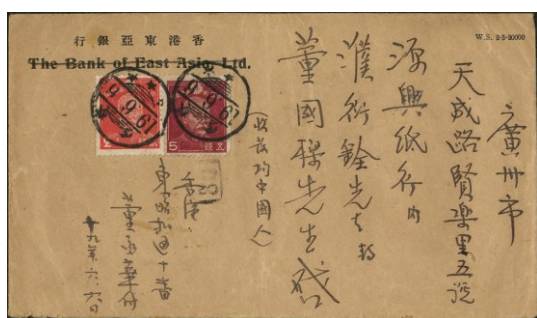 香港東亞銀行
The Bank of East Asia, Ltd.
廣州市
天成路賢樂里五號
源興紙行內
衍銓先生轉
董國樑先生啓
中國人
香港
東昭和通十番
董華付
十九年六.六日
19.6.6
19.6.6
5